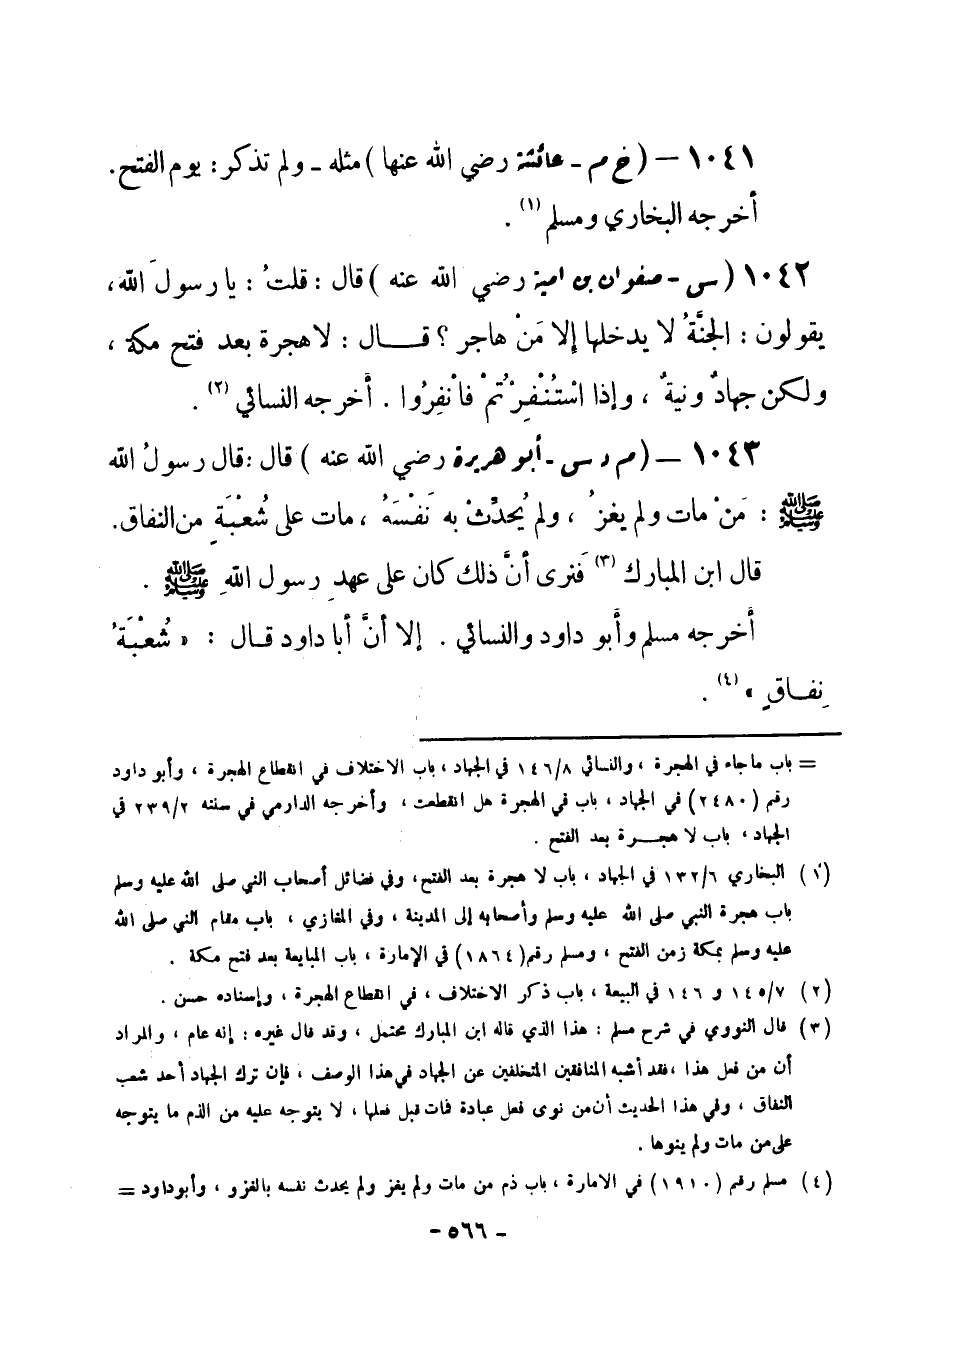 ١٠٤١ – ( خ م - عائشة رضي الله عنها ) مثله - ولم تذكر : يوم الفتح .
أخرجه البخاري ومسلم (١) .
١٠٤٢ ( س - صفوان بن أمية رضي الله عنه ) قال : قلتُ : يا رسولَ الله ،
يقولون : الجنَّةُ لا يدخلها إلا مَنْ هاجر ؟ قـــال : لا هجرة بعد فتح مكة ،
ولكن جهادٌ ونيةٌ ، وإذا اسْتُنْفِرْتُمْ فانْفِرُوا . أخرجه النسائي (٢) .
١٠٤٣ – ( م د س - أبو هريرة رضي الله عنه ) قال : قال رسولُ الله
ﷺ : مَنْ مات ولم يغزُ ، ولم يُحدِّثْ به نَفْسَهُ ، مات على شُعْبَةٍ من النفاق .
قال ابن المبارك (٣) فَنرى أنَّ ذلك كان على عهدِ رسول اللهِ ﷺ .
أخرجه مسلم وأبو داود والنسائي . إلا أنَّ أبا داود قــال : « شُعْبَةُ
نِفــاقٍ » (٤) .
= باب ما جاء في الهجرة ، والنسائي ١٤٦/٨ في الجهاد ، باب الاختلاف في انقطاع الهجرة ، وأبو داود
رقم ( ٢٤٨٠ ) في الجهاد ، باب في الهجرة هل انقطعت ، وأخرجه الدارمي في سننه ٢٣٩/٢ في
الجهاد ، باب لا هجــرة بعد الفتح .
(١) البخاري ١٣٢/٦ في الجهاد ، باب لا هجرة بعد الفتح ، وفي فضائل أصحاب النبي صلى الله عليه وسلم
باب هجرة النبي صلى الله عليه وسلم وأصحابه إلى المدينة ، وفي المغازي ، باب مقام النبي صلى الله
عليه وسلم بمكة زمن الفتح ، ومسلم رقم ( ١٨٦٤ ) في الإمارة ، باب المبايعة بعد فتح مكة .
(٢) ١٤٥/٧ و ١٤٦ في البيعة ، باب ذكر الاختلاف ، في انقطاع الهجرة ، وإسناده حسن .
(٣) قال النووي في شرح مسلم : هذا الذي قاله ابن المبارك محتمل ، وقد قال غيره : إنه عام ، والمراد
أن من فعل هذا ، فقد أشبه المنافقين المتخلفين عن الجهاد في هذا الوصف ، فإن ترك الجهاد أحد شعب
النفاق ، وفي هذا الحديث أن من نوى فعل عبادة فمات قبل فعلها ، لا يتوجه عليه من الذم ما يتوجه
على من مات ولم ينوها .
(٤) مسلم رقم ( ١٩١٠ ) في الامارة ، باب ذم من مات ولم يغز ولم يحدث نفسه بالغزو ، وأبو داود =
- ٥٦٦ -